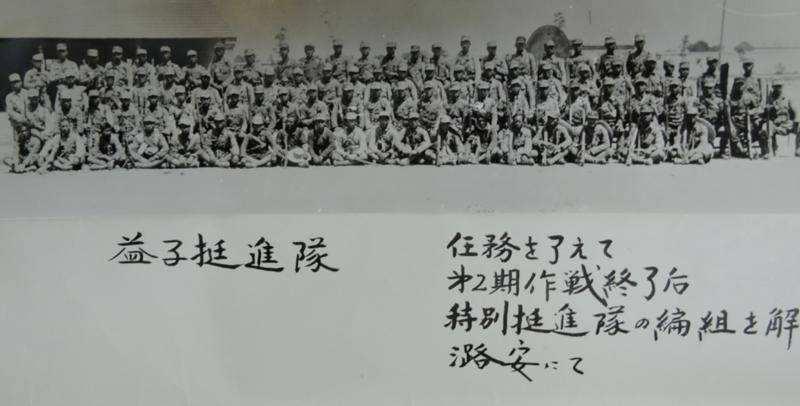 益子挺進隊
任務を了えて
第2期作戦終了后
特別挺進隊の編組を解
潞安にて